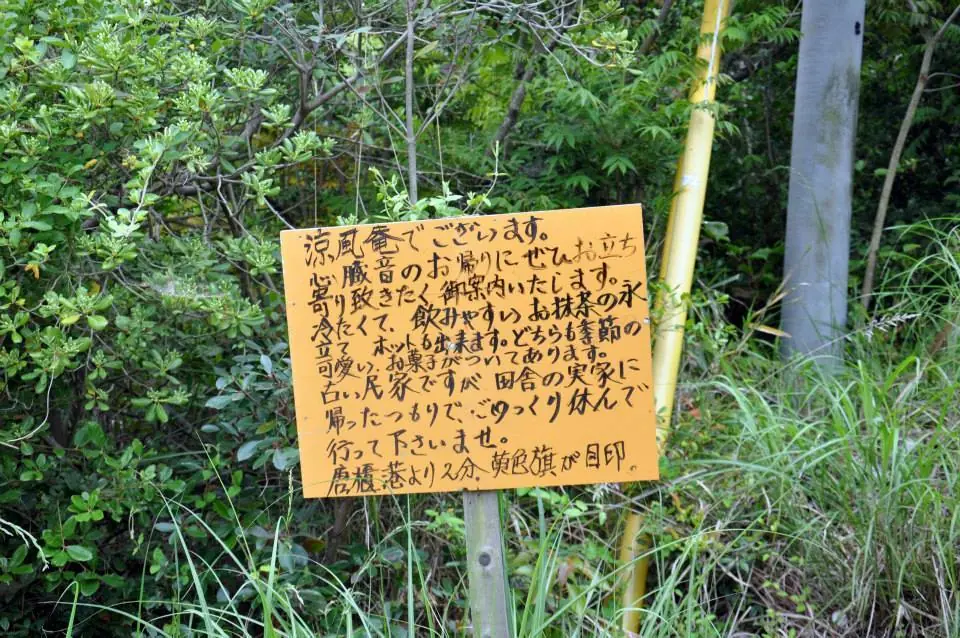 涼風庵でございます。
心臓音のお帰りにぜひお立ち
寄り致きたく御案内いたします。
冷たくて、飲みやすいお抹茶の氷
立て ホットも出来ます。どちらも季節の
可愛い、お菓子がついてあります。
古い民家ですが 田舎の実家に
帰ったつもりで、ごゆっくり休んで
行って下さいませ。
唐櫃港より2分。黄色旗が目印。